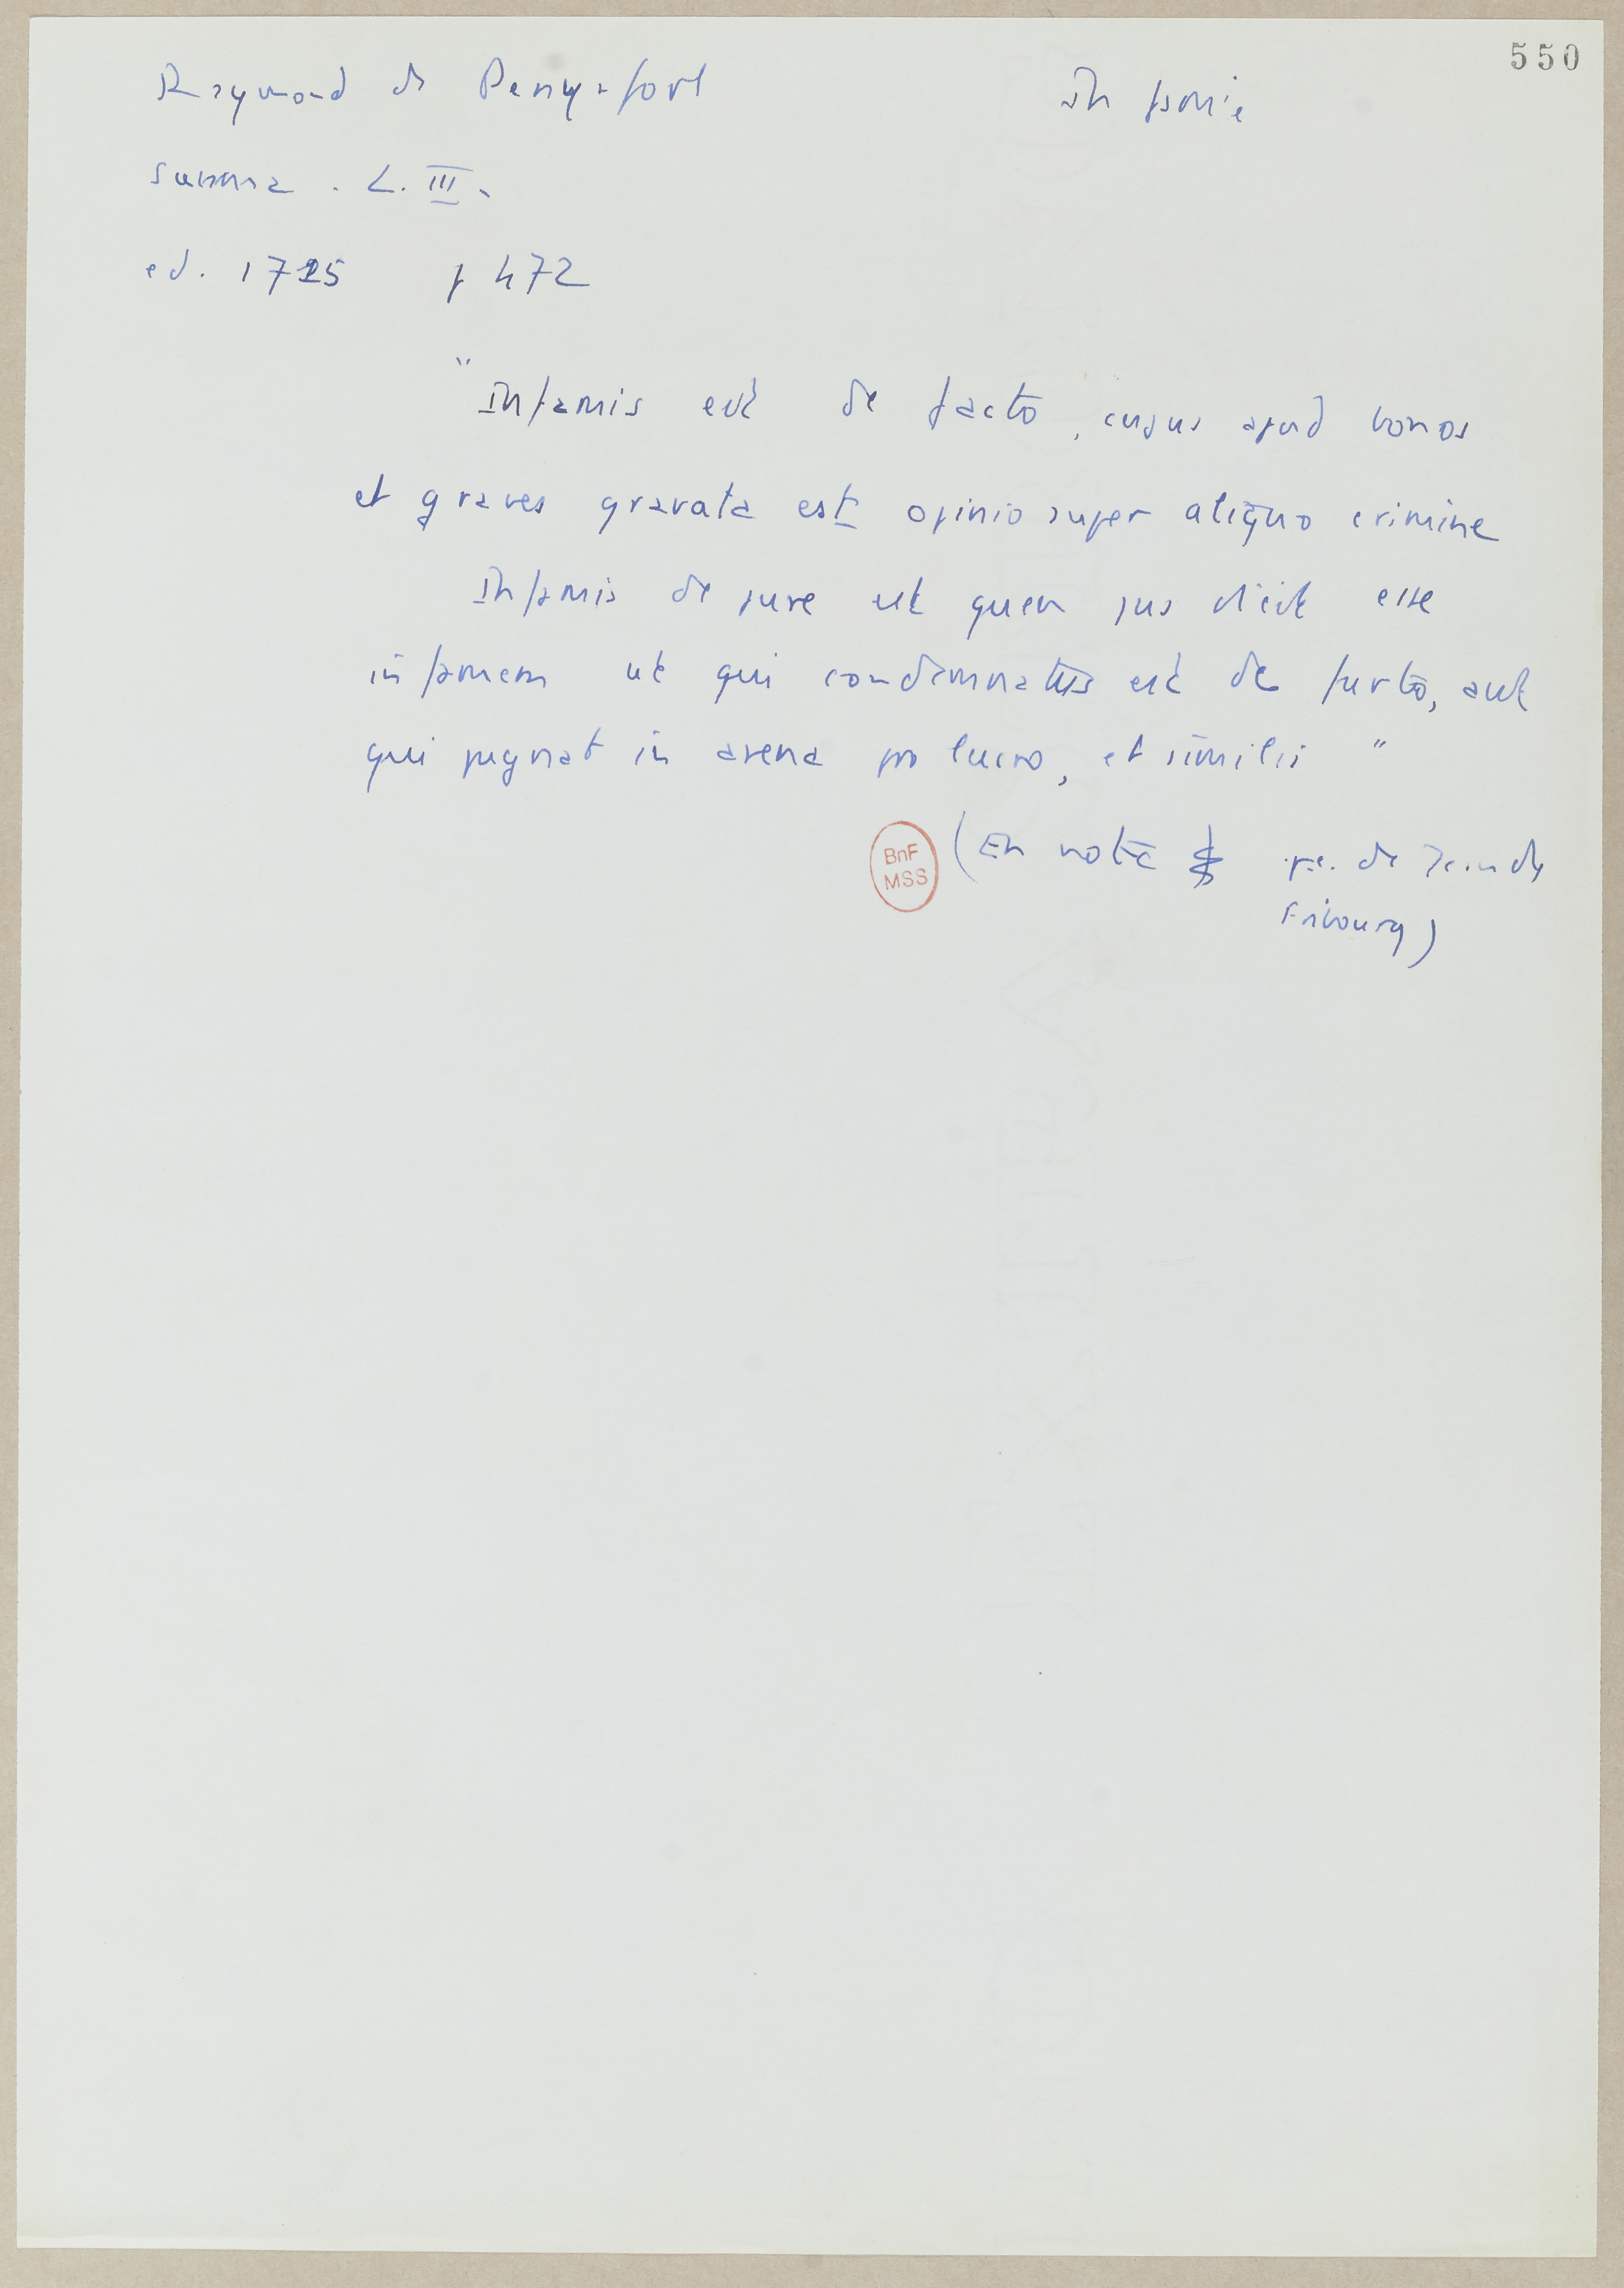 550
Raymond de Penyafort Infamie
Summa . L. III.
ed. 1715 p 472
"Infamis est de facto, cujus apud bonos
et graves gravata est opinio super aliquo crimine
Infamis de jure est quem jus dicit esse
infamem ut qui condemnatus est de furto, aut
qui pugnat in arena pro lucro, et similis "
BnF
MSS
(En note de Jean de
Fribourg)